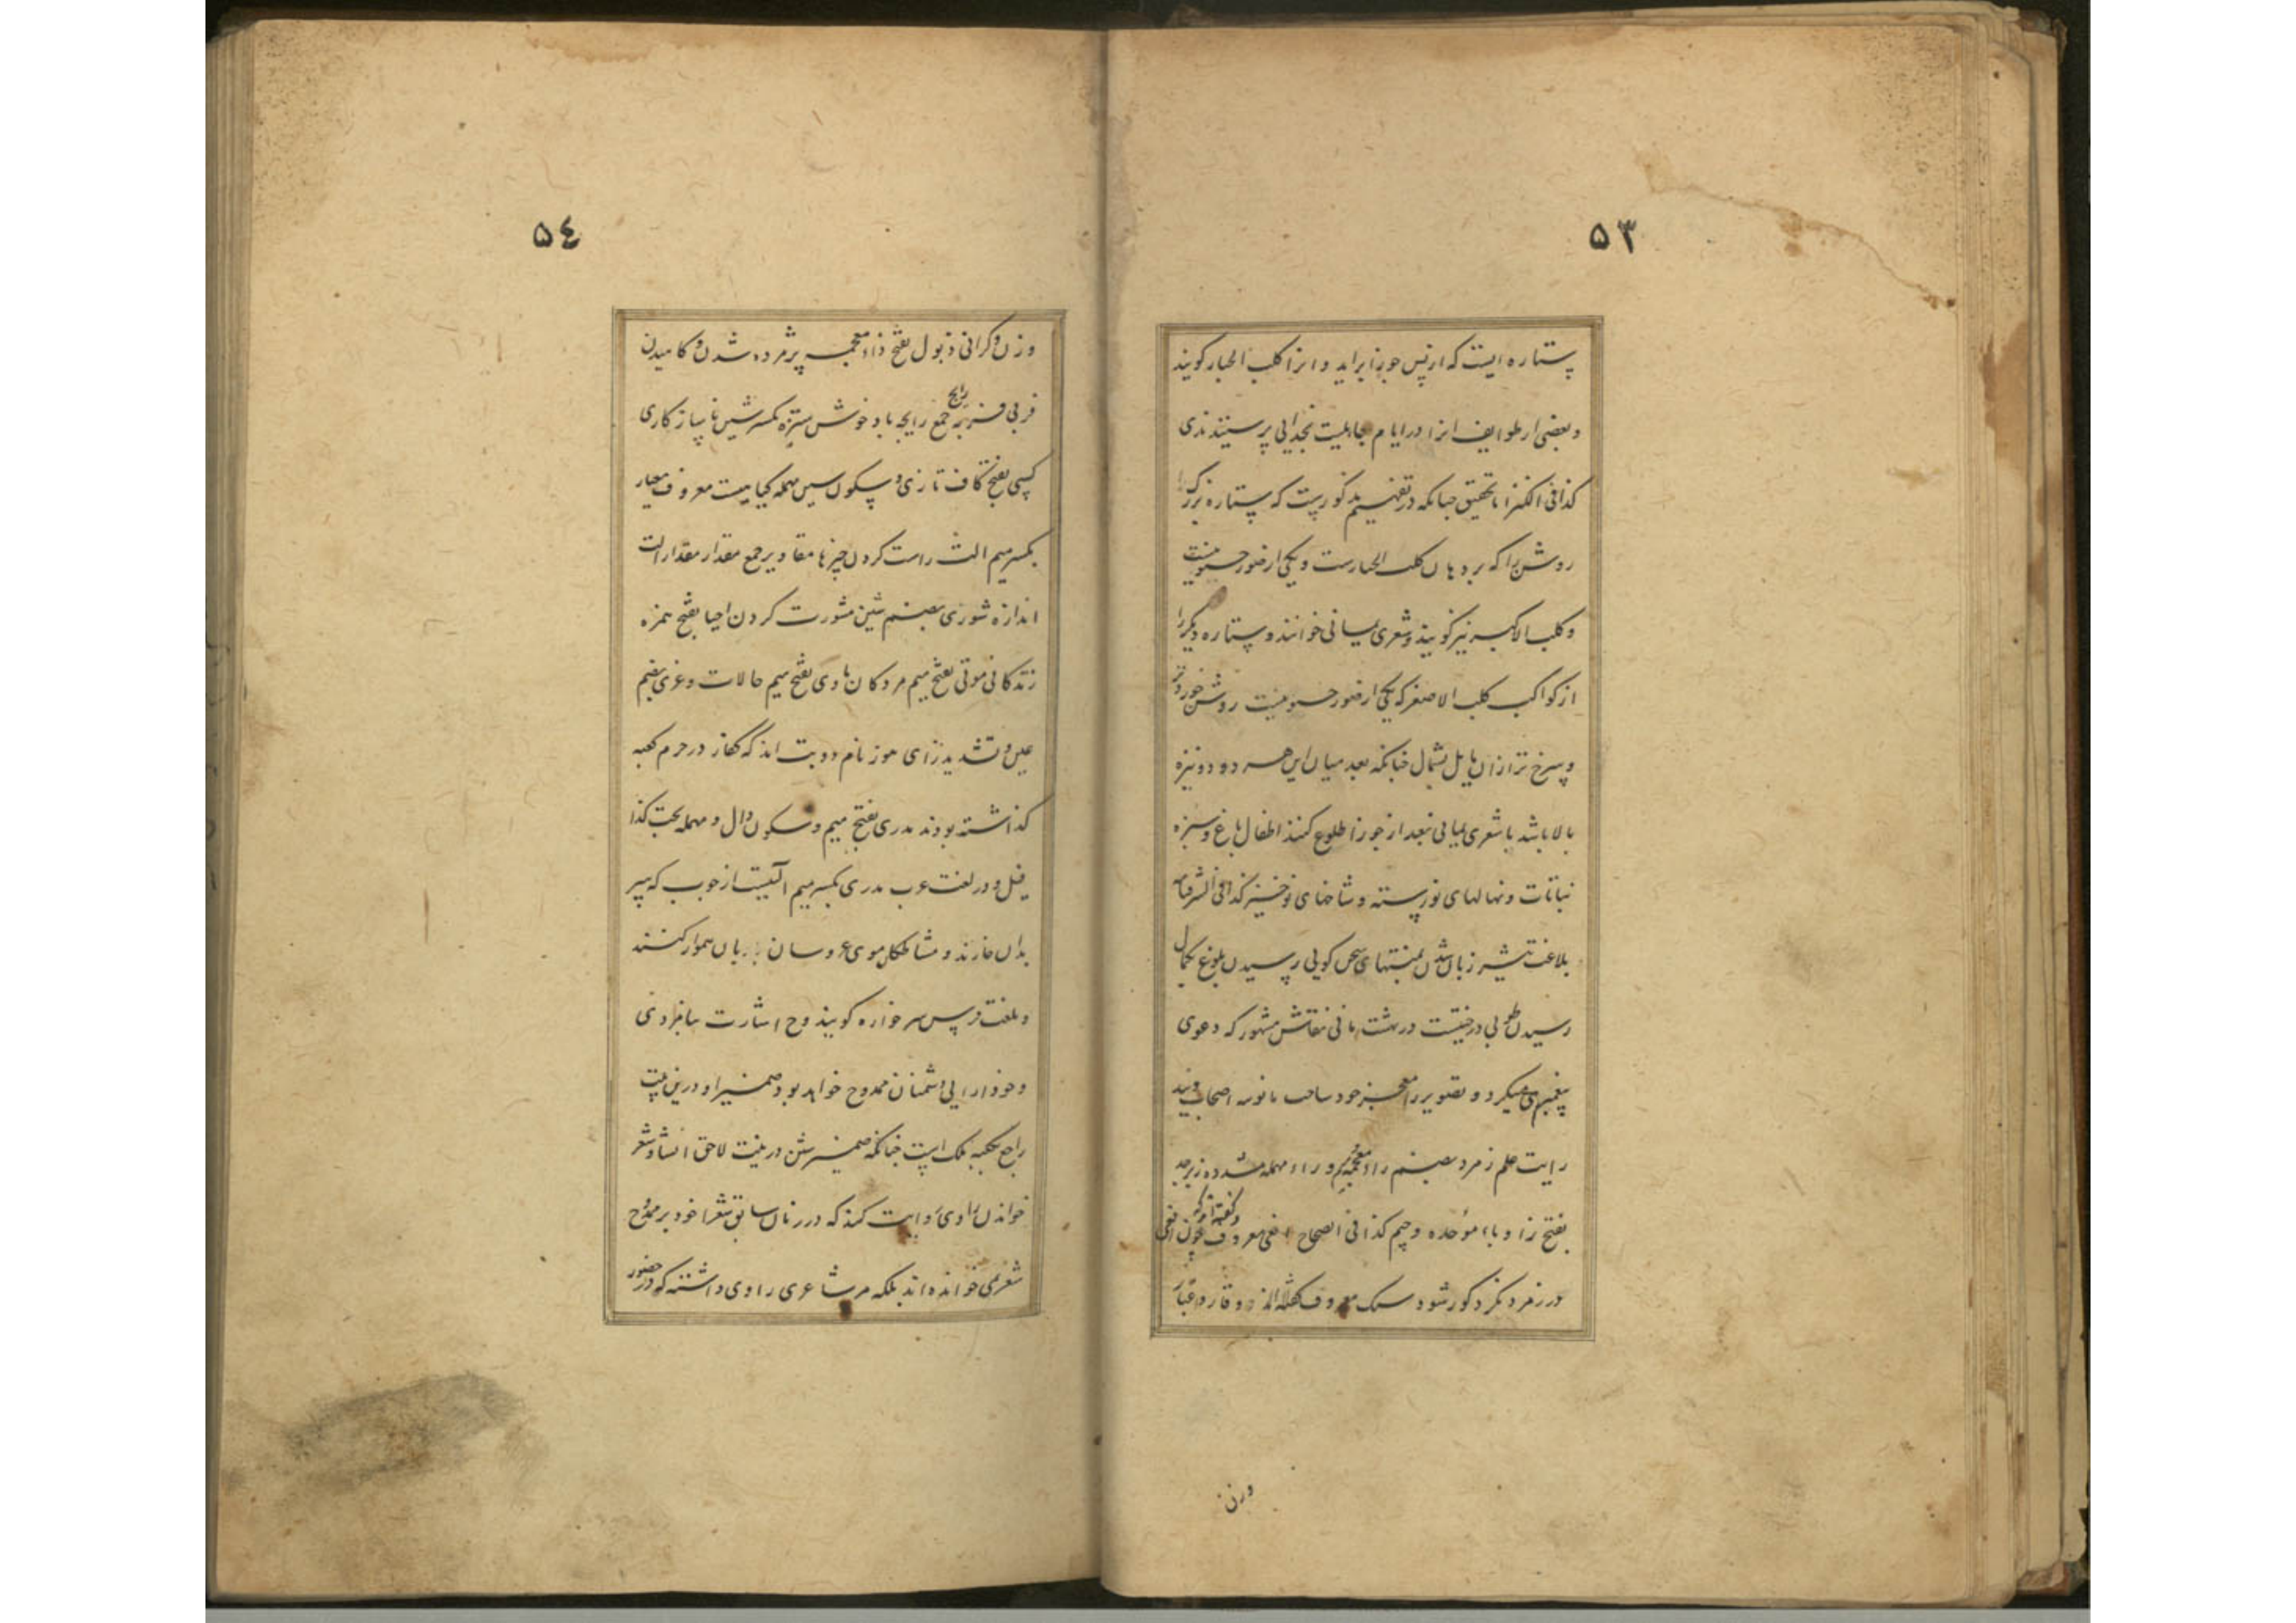 ۵۳
ستاره ایست که از پس جوزا براید و انرا کلب الجبار کویند
و بعضی از طوایف انرا در ایام جاهلیت بخدایی پرستیدندی
کذا فی الکنز اما تحقیق چنانکه در تفهیم مذکورست که ستاره بزرک
روشن را که بر دهان کلب الجبارست و یکی از صور جنوبیست
و کلب الاکبر نیز کویند و شعری یمانی خوانند و ستاره دیکر را
از کواکب کلب الاصغر که یکی از صور جنوبیست روشن خوردتر
و سرخ تر ازان مایل بشمال چنانکه بعد میان این هر دو دو نیزه
بالا باشد با شعری یمانی بعد از جوزا طلوع کنند اطفال باغ و سبزه
نباتات و نهالهای نورسته و شاخهای نوخیز کذا فی الشرفنامه
بلاغت شیر زبان شدن بمنتهای سخن کویی رسیدن بلوغ بکمال
رسیدن طوبی درختیست در بهشت مانی نقاش مشهور که دعوی
پیغمبری میکرد و تصویر را معجزه خود ساخت مانویه اصحاب ویند
رایت علم زمرد بضم زاء معجمه و راء مهمله مشدده زبرجد
بفتح زا و باء موحده و جیم کذا فی الصحاح افعی معروف چون افعی
در زمرد نکرد کور شود سنک معروف وقار و عیار
وزن
۵٤
وزن و کرانی ذبول بفتح ذاء معجمه پژمرده شدن و کاهیدن
فربی فربه رایح جمع رایحه باد خوش ستیزه بکسر سین ناسازکاری
کسی بفتح کاف تازی و سکون سین مهمله کیاهیست معروف معیار
بکسر میم الت راست کردن چیزها مقادیر جمع مقدار مقدار الت
اندازه شوری بضم شین مشورت کردن احیا بفتح همزه
زندکانی موتی بفتح میم مردکان هاوی بفتح میم حالات و عزی بضم
عین و تشدید زای هوز نام دو بت اند که کفار در حرم کعبه
کذاشته بودند مدری بفتح میم و سکون دال و مهمله بحت کذا
قیل و در لغت عرب مدری بکسر میم آلتیست از چوب که سر
بدان خارند و مشاطکان موی عروسان بدان هموار کنند
و بلغت فرس سرخواره کویند و ح اشارت
دشمنان ممدوح خواهد بود ضمیر او درین بیت
راجع بحکیه فلک است چنانکه ضمیر ش در بیت لاحق انشاد شعر
خواندن راوی روایت کننده که در زمان سابق شعرا خود بر ممدوح
شعر نمی خوانده اند بلکه هر شاعری راوی داشته که در حضور